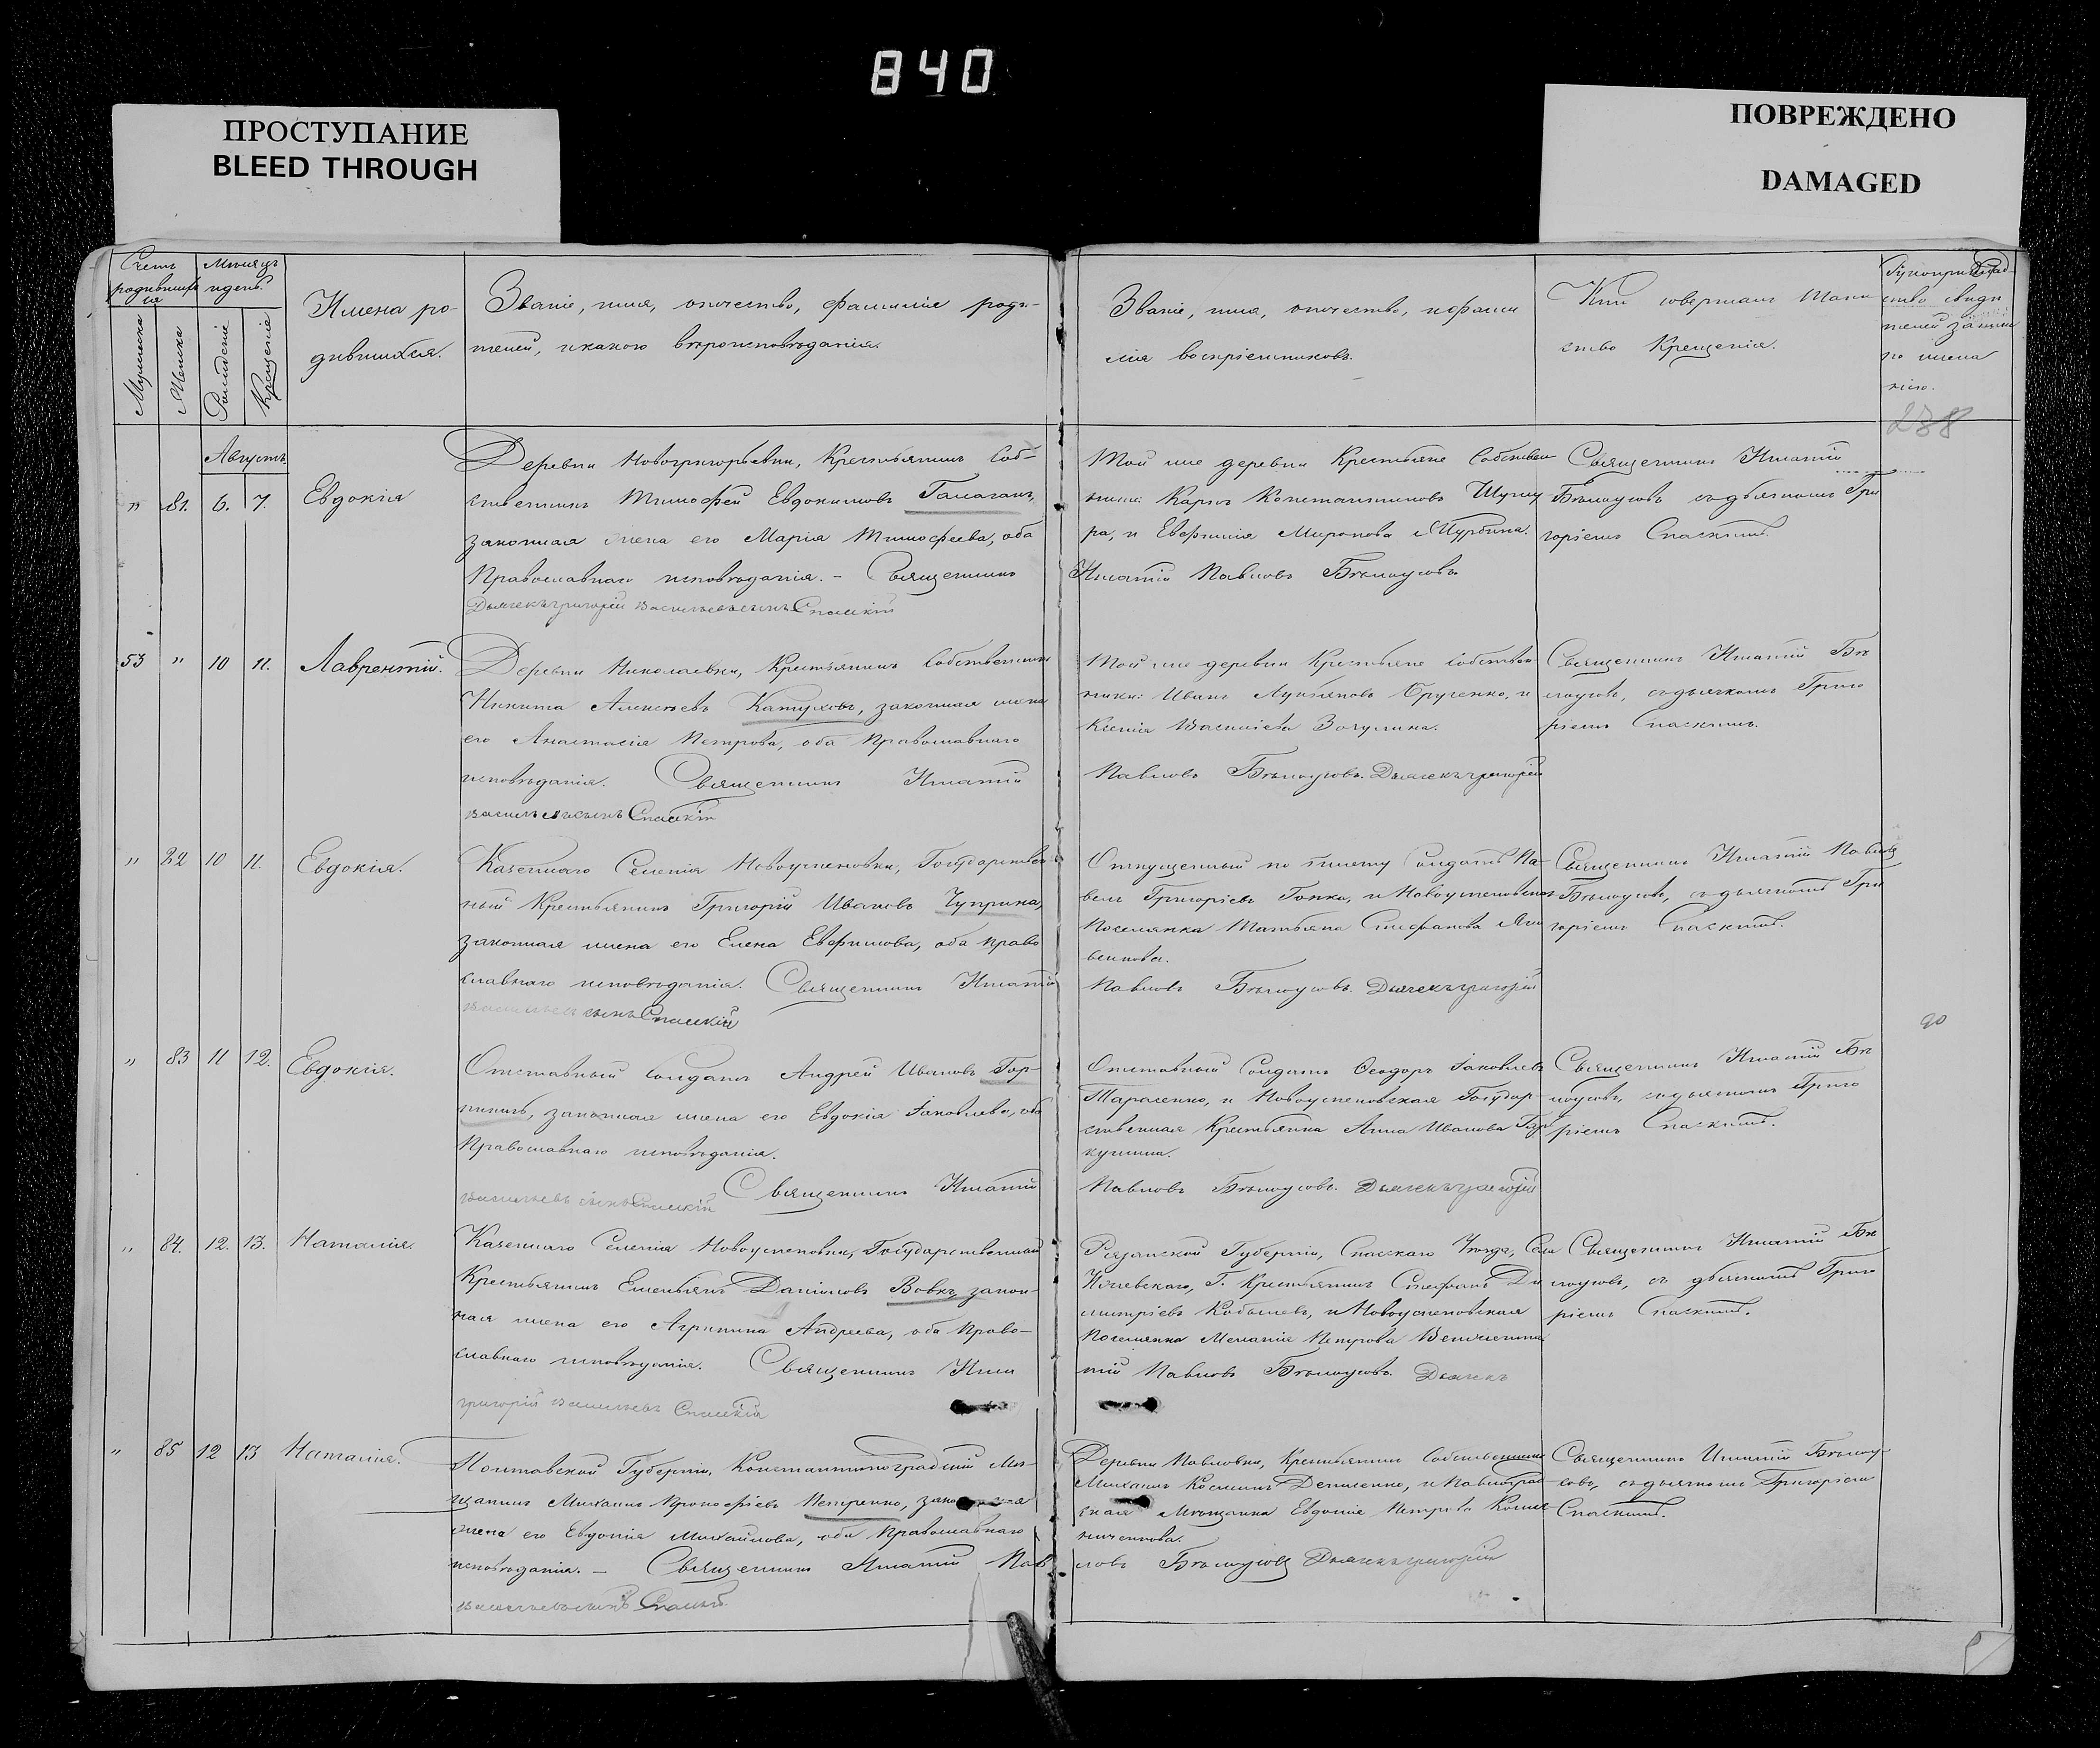 840
ПРОСТУПАНИЕ
BLEED THROUGH
ПОВРЕЖДЕНО
DAMAGED
Счетъ родившихся
Мѣсяцъ и день.
Мужеска
Женска
Рожденіе
Крещенія
Имена ро-
дившихся.
Званіе, имя, отчество, фамиліе роди-
телей, и какого вѣроисповѣданія.
Званіе, имя, отчество, и фами
лія воспріемниковъ.
Кто совершалъ таин
ство Крещенія.
Рукоприклад-
ство свиде
телей записи
по жела
нію.
238
Августъ
" 81. 6. 7. Евдокія
Деревни Новогригорьевки, Крестьянинъ Соб-
ственникъ Тимофей Евдокимовъ Галаганъ,
законная жена его Марія Тимофеева, оба
Православнаго исповѣданія. – Священникъ
Дьячекъ григорій васильевъ сынъ Спасскій
Той же деревни Крестьяне Собствен
ники: Карпъ Константиновъ
ра, и Евфимія Миронова
Игнатій Павловъ Бѣлоусовъ
Священникъ Игнатій
Бѣлоусовъ съ дьячкомъ Гри
горіемъ Спаскимъ.
53 " 10 11. Лаврентій.
Деревни Николаевки, Крестьянинъ Собственникъ
Никита Алексѣевъ Катуховъ, законная жена
его Анастасія Петрова, оба Православнаго
исповѣданія. Священникъ Игнатій
васильевъ сынъ Спаскій
Той же деревни Крестьяне Собствен
ники: Иванъ Лукьяновъ и
Ксенія Васильева
Павловъ Бѣлоусовъ. Дьячекъ григорій
Священникъ Игнатій Бѣ
лоусовъ, съ дьячкомъ Григо
ріемъ Спаскимъ.
" 82 10 11. Евдокія.
Казеннаго Селенія Новоуспеновки, Государствен
ный Крестьянинъ Григорій Ивановъ Чуприна,
законная жена его Елена Евфимова, оба право
славнаго исповѣданія. Священникъ Игнатій
васильевъ сынъ Спасскій
Отпущенный по билету Солдатъ Па-
велъ Григоріевъ и Новоуспеновская
Поселянка Татьяна Стефанова
Павловъ Бѣлоусовъ. Дьячекъ григорій
Священникъ Игнатій Павловъ
Бѣлоусовъ, съ дьячкомъ Гри
горіемъ Спаскимъ.
90
" 83 11 12. Евдокія.
Отставный Солдатъ Андрей Ивановъ Гор-
законная жена его Евдокія Іаковлева, оба
Православнаго исповѣданія.
Священникъ Игнатій
васильевъ сынъ Спасскій
Отставный Солдатъ Ѳеодоръ Іаковлевъ
Тарасенко, и Новоуспеновская Государ-
ственная Крестьянка Анна Иванова
Павловъ Бѣлоусовъ. Дьячекъ григорій
Священникъ Игнатій Бѣ
лоусовъ, съ дьячкомъ Григо
ріемъ Спаскимъ.
" 84. 12. 13. Наталія.
Казеннаго Селенія Новоуспеновки, Государственный
Крестьянинъ Емельянъ Даниловъ Вовкъ, закон-
ная жена его Агрипина Андреева, оба Право-
славнаго исповѣданія. Священникъ Игна
григорій васильевъ Спасскій
Рязанской Губерніи, Спасскаго Уѣзда, Села
Г. Крестьянинъ Стефанъ Ди
митріевъ и Новоуспеновская
Поселянка Меланія Петрова
тій Павловъ Бѣлоусовъ. Дьячекъ
Священникъ Игнатій Бѣ
лоусовъ, съ дьячкомъ Григо
ріемъ Спаскимъ.
" 85 12 13 Наталія.
Полтавской Губерніи, Константиноградскій Мѣ-
щанинъ Михаилъ Прокофіевъ Петренко, законная
жена его Евдокія Михайлова, оба Православнаго
исповѣданія. – Священникъ Игнатій Пав
васильевъ сынъ Спаскій.
Деревни Павловки, Крестьянинъ Собственникъ
Михаилъ Косминъ Денисенко, и Павлоград
ская Мѣщанка Евдокія Петрова
ловъ Бѣлоусовъ Дьячекъ григорій
Священникъ Игнатій Бѣлоу-
совъ, съ дьячкомъ Григоріемъ
Спаскимъ.